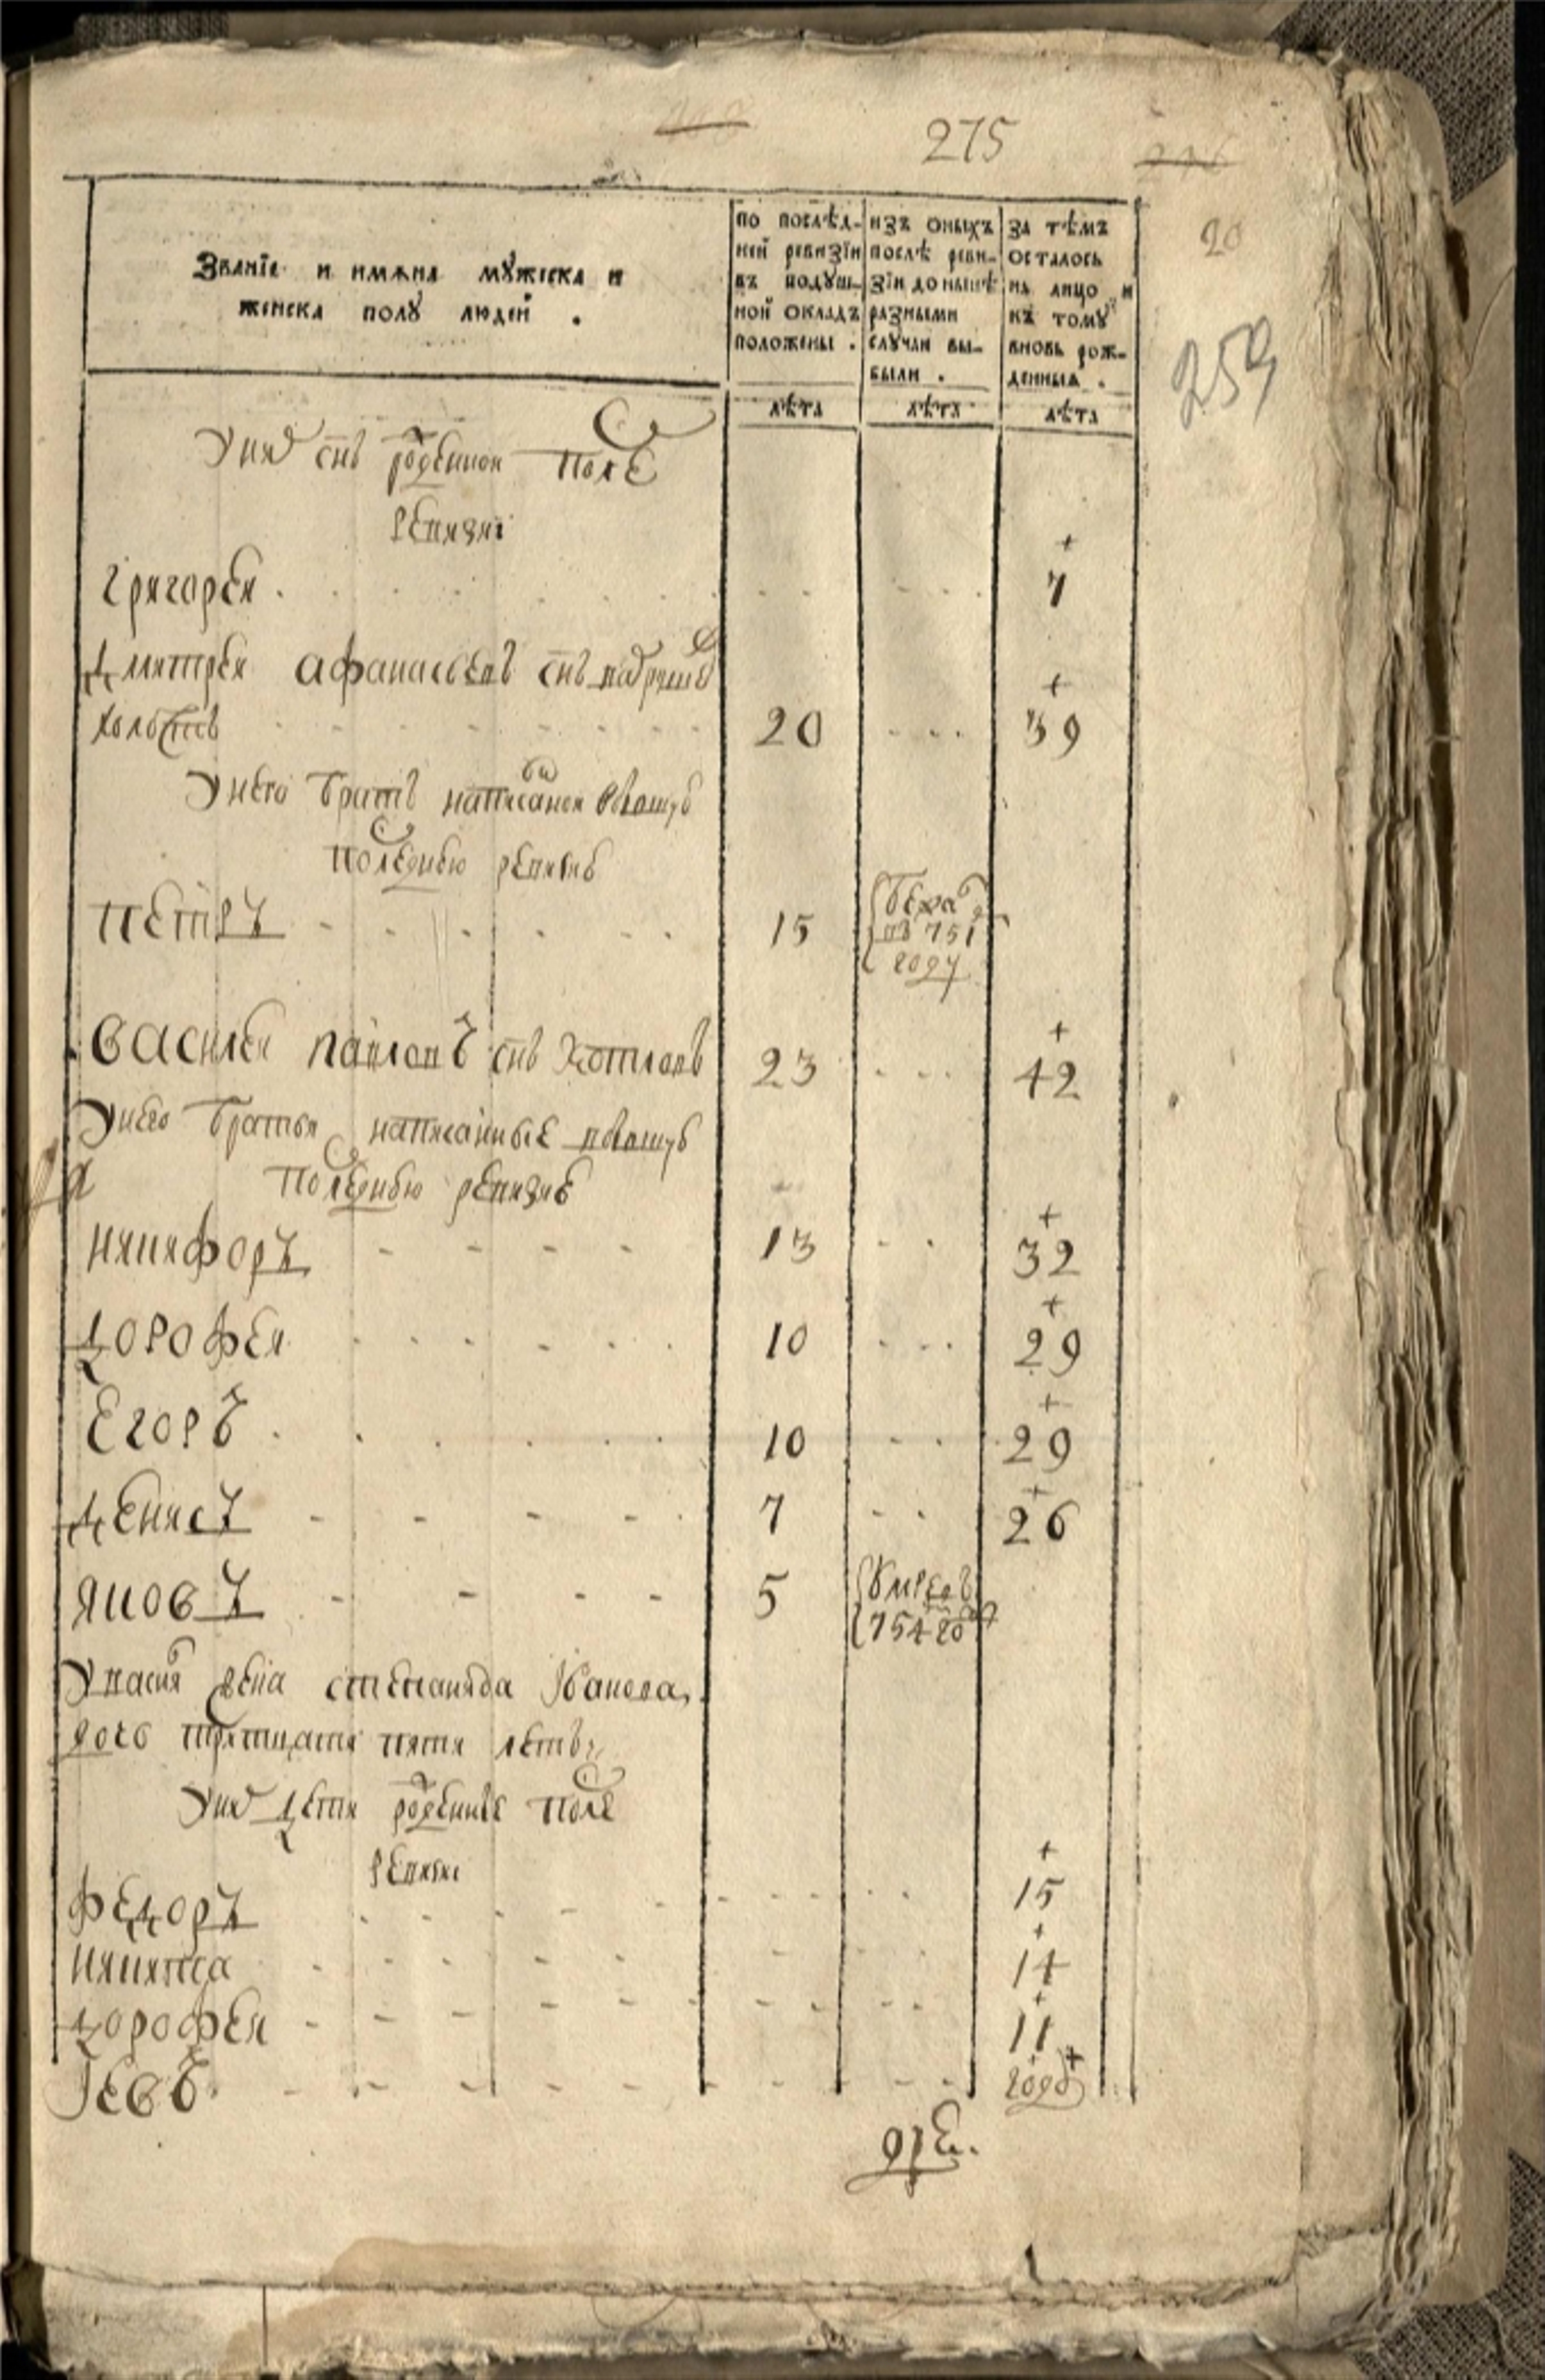 275
20
259
Званїе и имѧна мꙋжеска и
женска полꙋ людей .
по послѣд-
ней ревизїи
въ подꙋш-
ной окладъ
положены .
изъ оныхъ
послѣ реви-
зїи до нынѣ
разными
слꙋчаи вы-
были .
за тѣмъ
осталось
на лицо и
къ томꙋ
вновь рож-
денныѧ .
лѣта
лѣта
лѣта
У них снъ рожденной после
ревизиі
Григорей 7
Дмитрей Афанасьевъ снъ
холостъ 20 39
У него братъ написанной въ бывшую
последнюю ревизию
Петръ 15 бежал
въ 751
году
Василей Павловъ снъ Котловъ 23 42
У него братья написанные в бывшую
последнюю ревизию
Никифоръ 13 32
Дорофей 10 29
Егоръ 10 29
Денисъ 7 26
Яковъ 5 умре въ
754 году
У василья жена степанида Іванова
дочь тритцати пяти летъ
У них дети рожденные после
ревизиі
Федоръ 15
Никита 14
Дорофей 11
Іевъ году